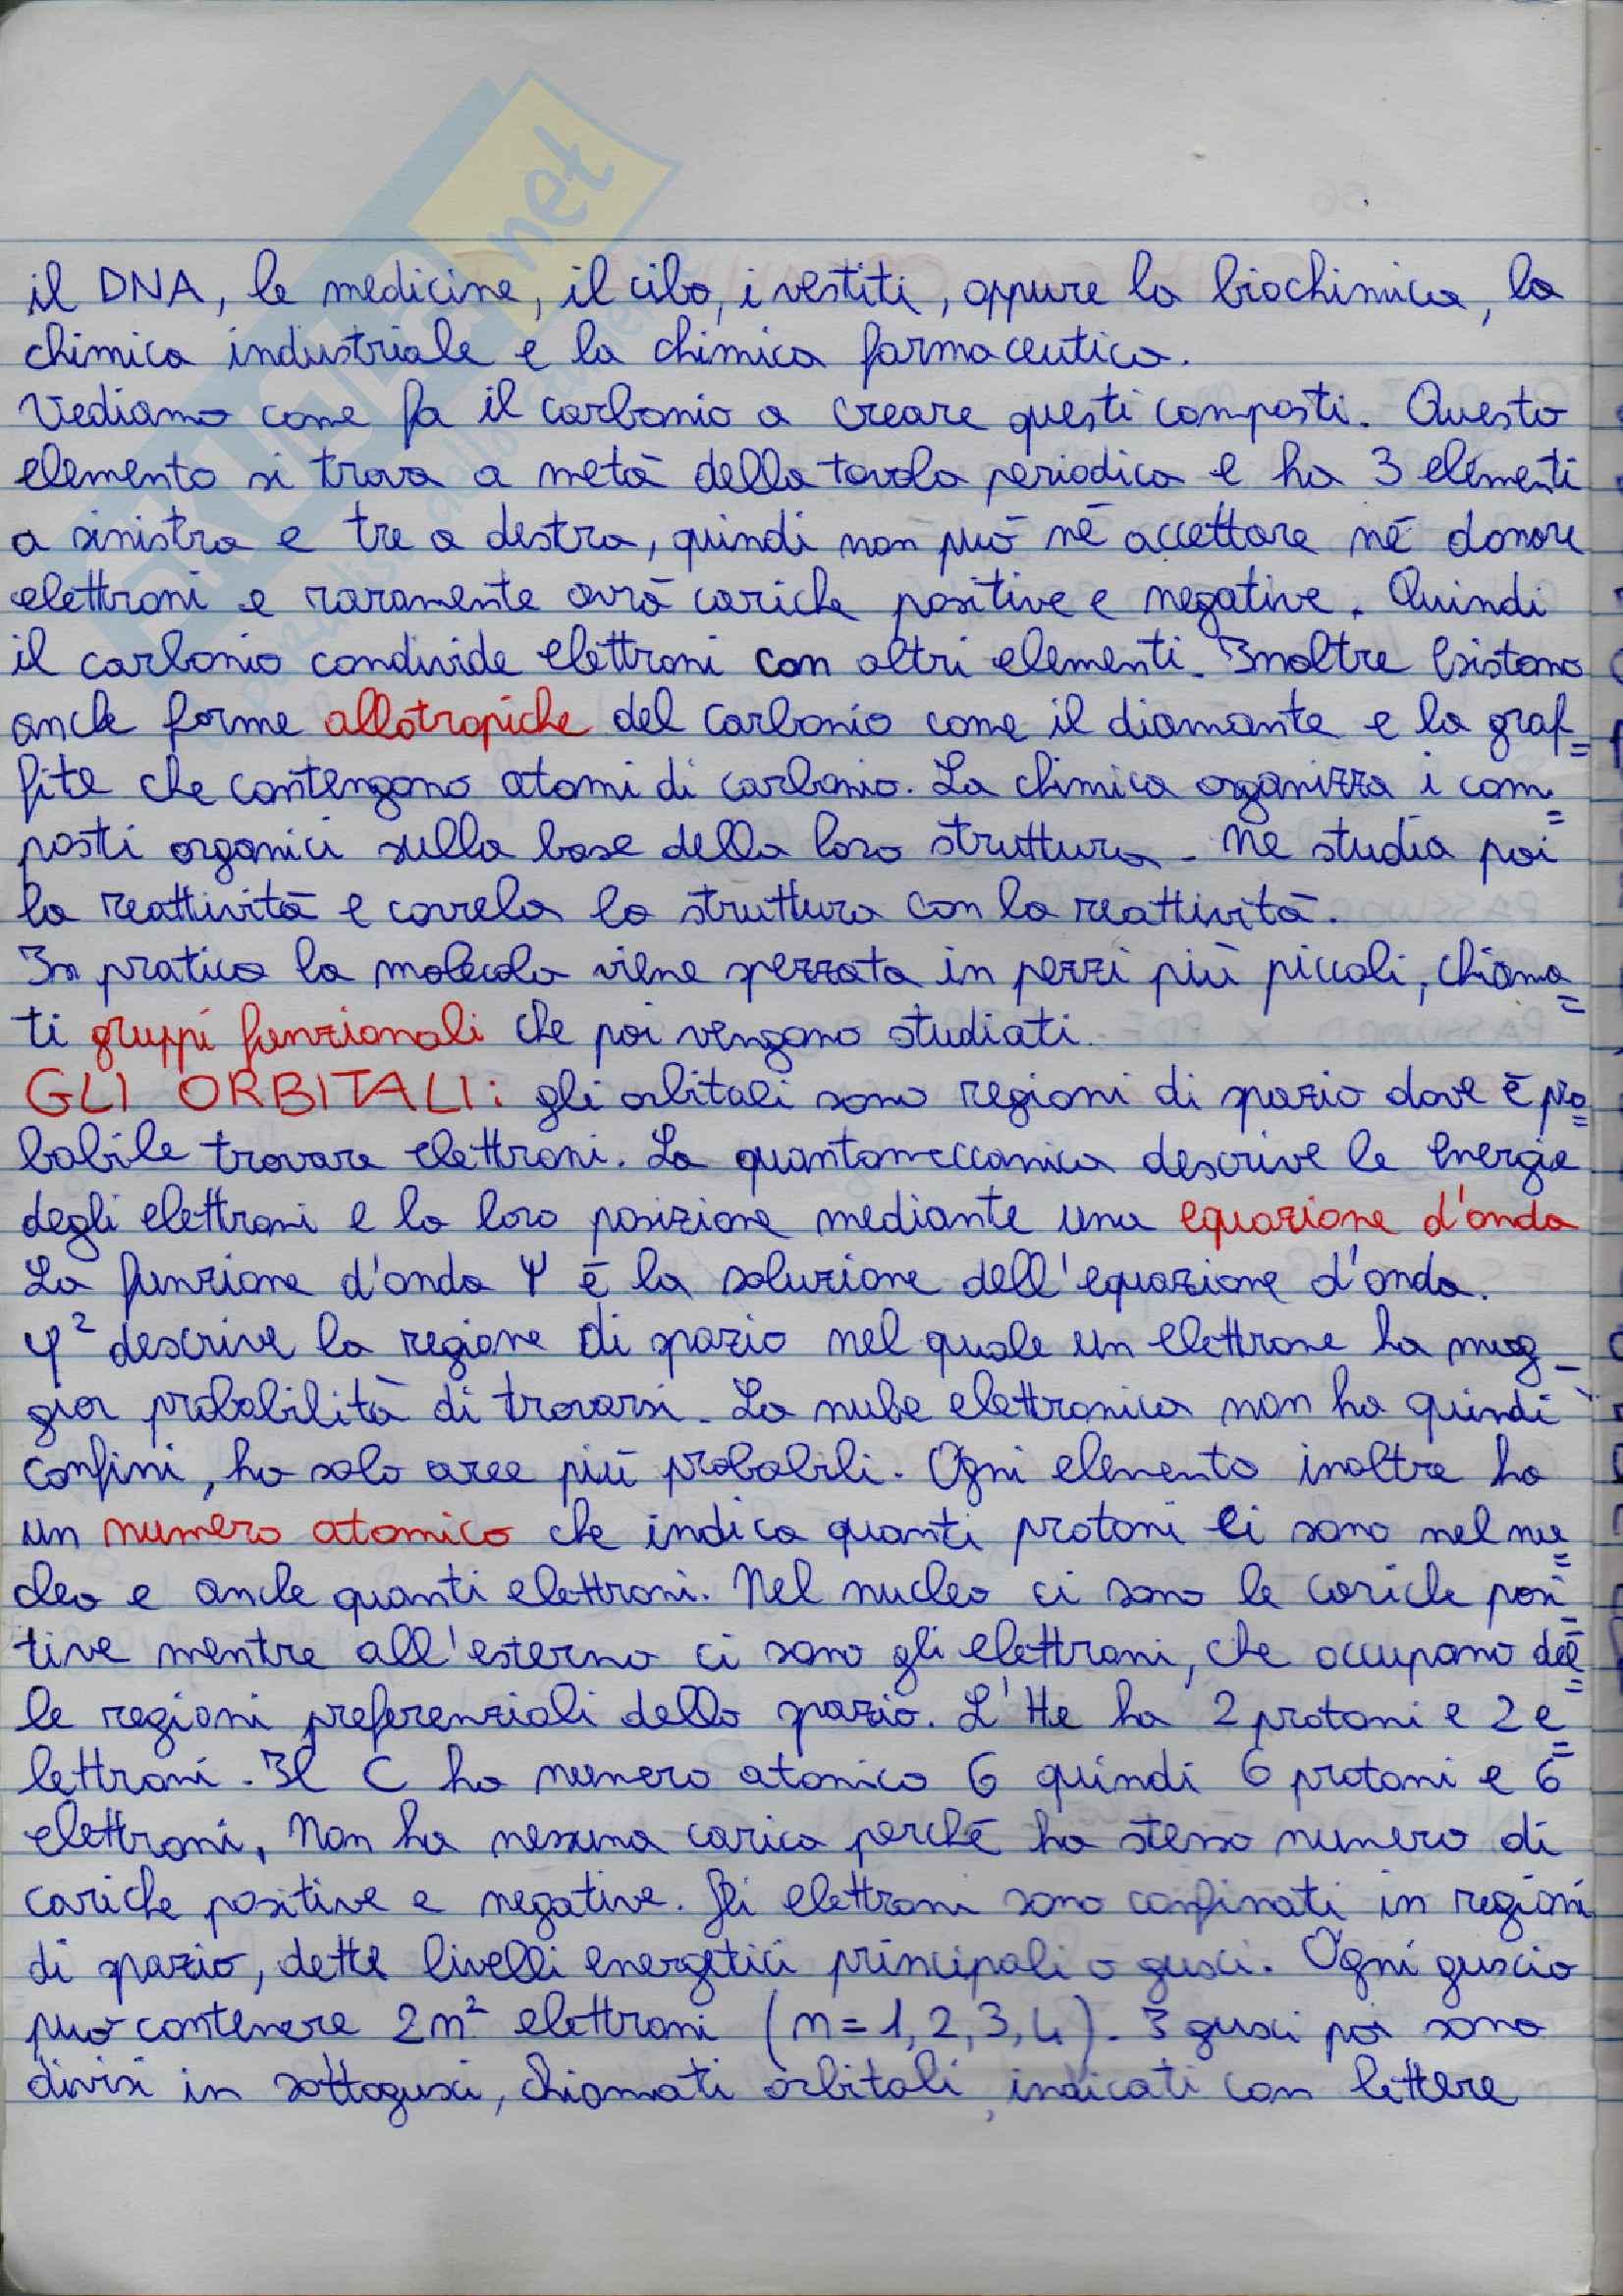 il DNA, le medicine, il cibo, i vestiti, oppure la biochimica, la
chimica industriale e la chimica farmaceutica.
Vediamo come fa il carbonio a creare questi composti. Questo
elemento si trova a metà della tavola periodica e ha 3 elementi
a sinistra e tre a destra, quindi non può nè accettare nè donare
elettroni e raramente avrà cariche positive e negative. Quindi
il carbonio condivide elettroni con altri elementi. Inoltre esistono
anche forme allotropiche del carbonio come il diamante e la graf=
fite che contengono atomi di carbonio. La chimica organizza i com=
posti organici sulla base della loro struttura. Ne studia poi
la reattività e correla la struttura con la reattività.
In pratica la molecola viene spezzata in pezzi più piccoli, chiama=
ti gruppi funzionali che poi vengono studiati.
GLI ORBITALI: gli orbitali sono regioni di spazio dove è pro=
babile trovare elettroni. La quantomeccanica descrive le energie
degli elettroni e la loro posizione mediante una equazione d'onda
La funzione d'onda Ψ è la soluzione dell'equazione d'onda.
Ψ² descrive la regione di spazio nel quale un elettrone ha mag-
gior probabilità di trovarsi. La nube elettronica non ha quindi
confini, ha solo aree più probabili. Ogni elemento inoltre ha
un numero atomico che indica quanti protoni ci sono nel nu=
cleo e anche quanti elettroni. Nel nucleo ci sono le cariche posi=
tive mentre all'esterno ci sono gli elettroni, che occupano del=
le regioni preferenziali dello spazio. L'He ha 2 protoni e 2 e=
lettroni. Il C ha numero atomico 6 quindi 6 protoni e 6
elettroni. Non ha nessuna carica perchè ha stesso numero di
cariche positive e negative. Gli elettroni sono confinati in regioni
di spazio, dette livelli energetici principali o gusci. Ogni guscio
può contenere 2n² elettroni (n=1,2,3,4). I gusci poi sono
divisi in sottogusci, chiamati orbitali, indicati con lettere